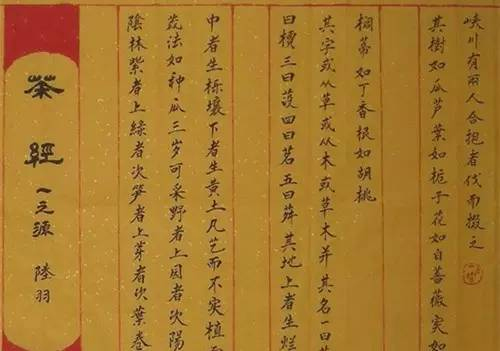 峡川有两人合抱者伐而掇之
其樹如瓜芦葉如栀子花如白薔薇实如
榈蒂如丁香根如胡桃
其字或从草或从木或草木并其名一曰
曰檟三曰蔎四曰茗五曰荈其地上者生烂
中者生栎壤下者生黄土凡艺而不实植
茂法如神瓜三岁可采野者上园者次陽
陰林紫者上緑者次笋者上芽者次葉卷
茶經
一之源
陸羽